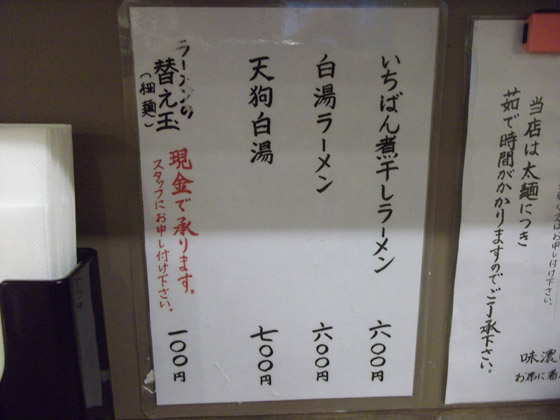 いちばん煮干しラーメン 六〇〇円
白湯ラーメン 六〇〇円
天狗白湯 七〇〇円
ラーメンの
替え玉
(細麺)
現金で承ります。
スタッフにお申し付け下さい。
一〇〇円
当店は太麺につき
茹で時間がかかりますのでご了承下さい。
味濃